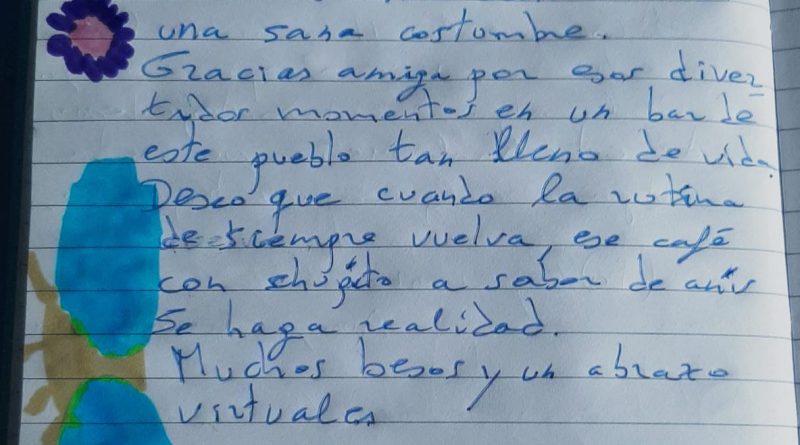 una sana costumbre.
Gracias amiga por esos diver
tidos momentos en un bar de
este pueblo tan lleno de vida.
Deseo que cuando la rutina
de siempre vuelva, ese café
con a sabor de anís
se haga realidad.
Muchos besos y un abrazo
virtuales